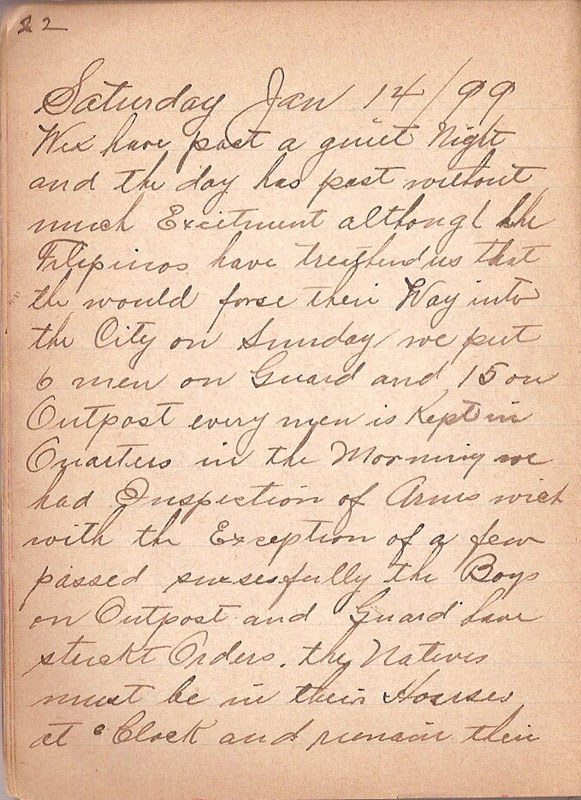 22
Saturday Jan 14/99
Wee have past a quiet Night
and the day has past without
much Excitment although the
Filipinos have treathend us that
the would forse their Way into
the City on Sunday we put
6 men on Guard and 15 on
Outpost every men is Kept in
Quarters in the Morning we
had Inspection of Arms wich
with the Exception of a few
passed suxsesfully the Boys
on Outpost and Guard have
strickt Orders. they Natives
must be in their Houses
at 6 Clock and remain their